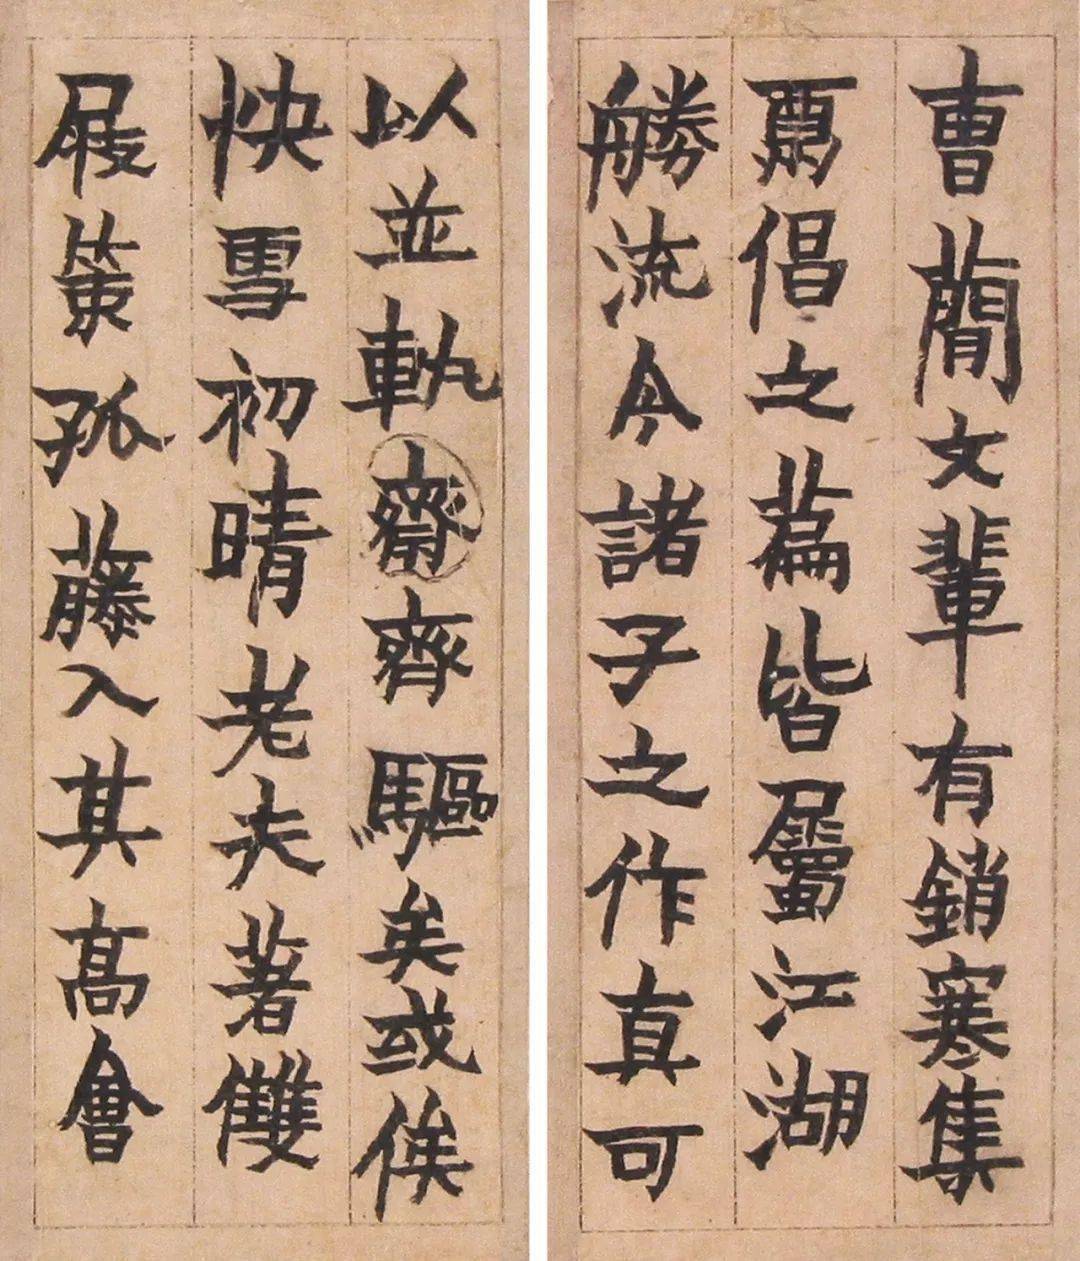 曹蕳文輩有銷寒集
爾倡之萹皆屬江湖
勝流今諸子之作真可
以並軌齋齊驅矣或俟
快雪初晴老夫著雙
屐策孤藤入其高會